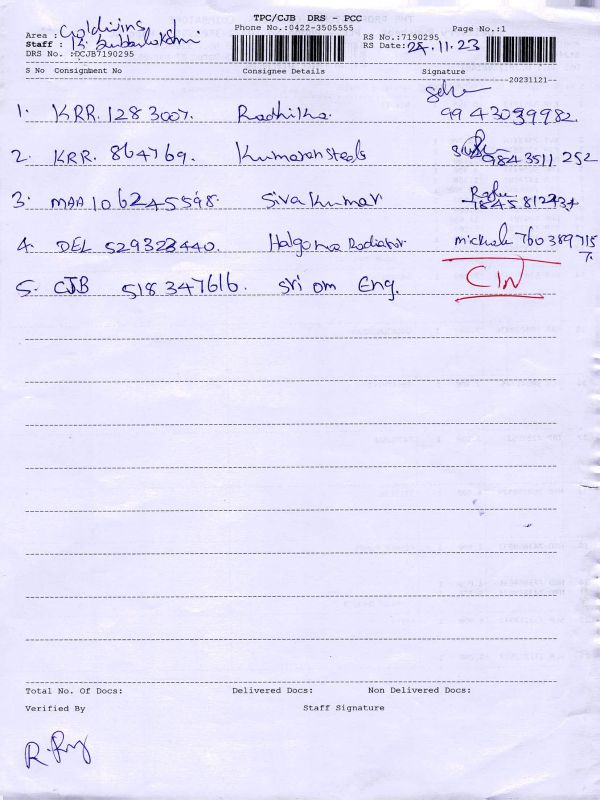 TPC/CJB DRS - PCC
Area : Goldwins Phone No.:0422-3505555 RS No.:7190295 Page No.:1
Staff : B. Subbulakshmi RS Date: 21.11.23
DRS No. :DCJB7190295
S No Consignment No Consignee Details Signature
--20231121--
1. KRR. 1283007. Radhika. 9943039982
2. KRR. 864769. Kumaran steels 9843511 252
3. MAA 106245598. Siva Kumar Raghu
4. DEL 529323440. Halgona Radiator michale 7603897157
5. CJB 518347616. Sri om Eng. CIN
Total No. Of Docs: Delivered Docs: Non Delivered Docs:
Verified By Staff Signature